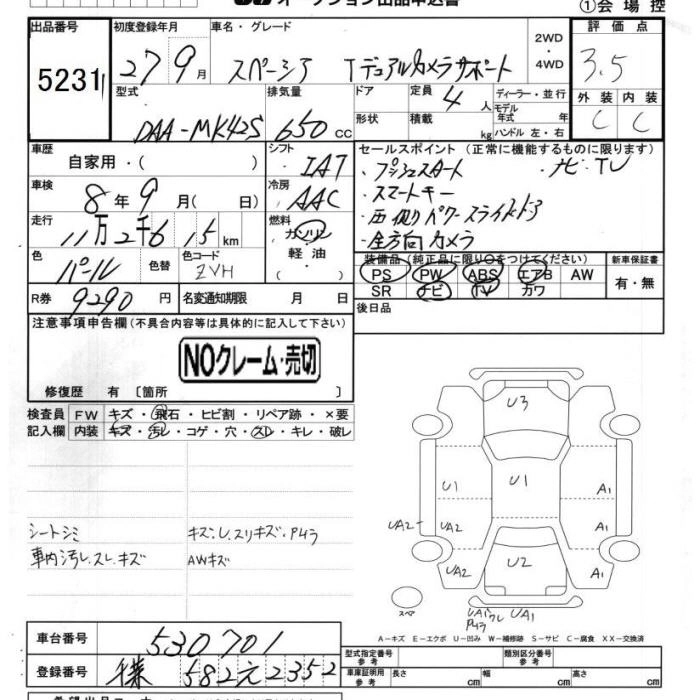 オークション出品申込書
①会場控
出品番号 初度登録年月 車名・グレード 2WD 評価点
5231 27 9月 スペーシア Tデュアルカメラサポート ・4WD 3.5
型式 排気量 ドア 定員 4人 ディーラー・並行 外装 内装
DAA-MK42S 650cc 形状 積載 kg モデル年式 年 C C
ハンドル 左・右
車歴 自家用・( ) シフト IAT セールスポイント (正常に機能するものに限ります)
・プッシュスタート ・ナビ・TV
車検 8年9月( 日) 冷房 AAC ・スマートキー
走行 11万2千6 15km 燃料 ガソリン・軽油・( ) ・両側パワースライドドア
・全方向カメラ
色 パール 色替 色コード ZVH 装備品 (純正品に限り○をつけてください) 新車保証書
PS PW ABS エアB AW 有・無
R券 9290円 名変通知期限 月 日 SR ナビ TV カワ
後日品
注意事項申告欄 (不具合内容等は具体的に記入して下さい)
NOクレーム・売切
修復歴 有 〔箇所 〕
検査員 FW キズ・飛石・ヒビ割・リペア跡・×要
記入欄 内装 キズ・汚レ・コゲ・穴・スレ・キレ・破レ
U3
U1 U1 A1
UA2 UA2 A1
UA2 U2 A1
シートシミ キズ・
車内汚レ.スレ.キズ AWキズ
スペア UA1 UA1
A-キズ E-エクボ U-凹み W-補修跡 S-サビ C-腐食 XX-交換済
車台番号 530701
型式指定番号 参考 類別区分番号 参考
登録番号 582 2352 車庫証明用 参考 長さ cm 幅 cm 高さ cm